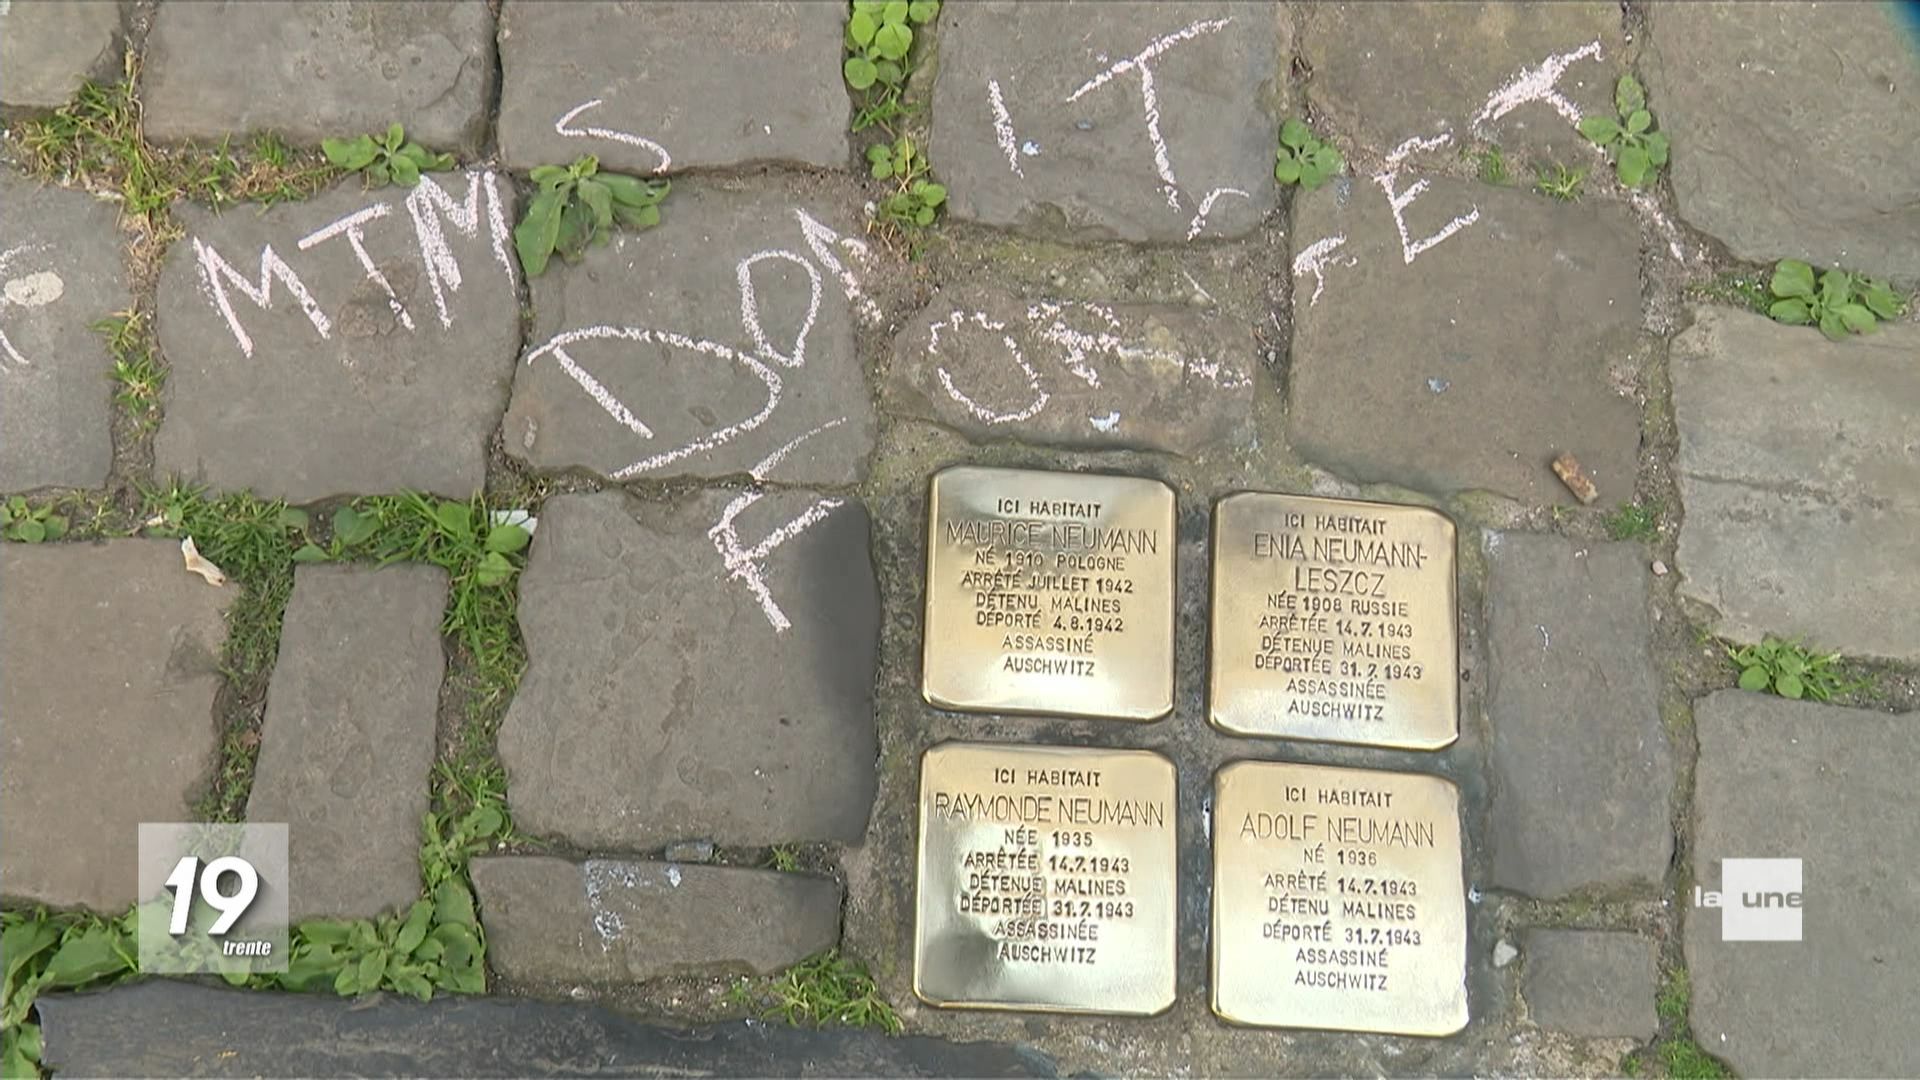 ICI HABITAIT
MAURICE NEUMANN
NÉ 1910 POLOGNE
ARRÊTÉ JUILLET 1942
DÉTENU MALINES
DÉPORTÉ 4.8.1942
ASSASSINÉ
AUSCHWITZ
ICI HABITAIT
ENIA NEUMANN-
LESZCZ
NÉE 1908 RUSSIE
ARRÊTÉE 14.7.1943
DÉTENUE MALINES
DÉPORTÉE 31.7.1943
ASSASSINÉE
AUSCHWITZ
ICI HABITAIT
RAYMONDE NEUMANN
NÉE 1935
ARRÊTÉE 14.7.1943
DÉTENUE MALINES
DÉPORTÉE 31.7.1943
ASSASSINÉE
AUSCHWITZ
ICI HABITAIT
ADOLF NEUMANN
NÉ 1936
ARRÊTÉ 14.7.1943
DÉTENU MALINES
DÉPORTÉ 31.7.1943
ASSASSINÉ
AUSCHWITZ
19
trente
la une